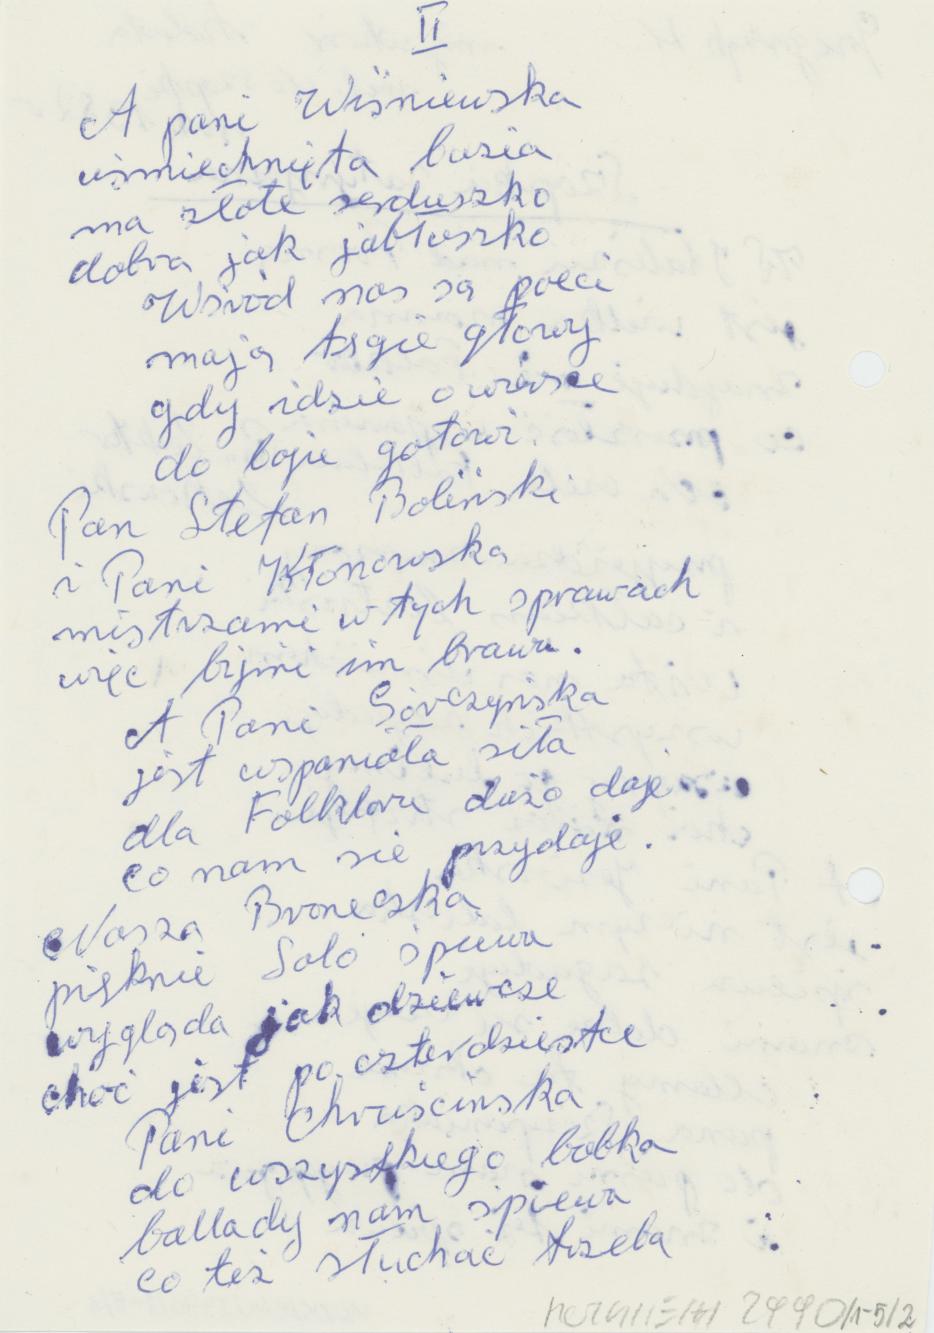 II
A pani Wiśniewska
uśmiechnięta buzia
ma złote serduszko
dobra jak jabłuszko
Wśród nas są poeci
mają tęgie głowy
gdy idzie o wiersze
do boju gotowi
Pan Stefan Boliński
i Pani Kłonowska
mistrzami w tych sprawach
więc bijmi im brawa.
A Pani Górczyńska
jest wspaniała siła
dla Folkloru dużo daje
co nam sie przydaje.
Nasza Broneczka
pięknie Solo śpiewa
wygląda jak dziewcze
choć jest po czterdziestce
Pani Chruścińska
do wszystkiego babka
ballady nam śpiewa
co też słuchać trzeba
2440/1-5/2